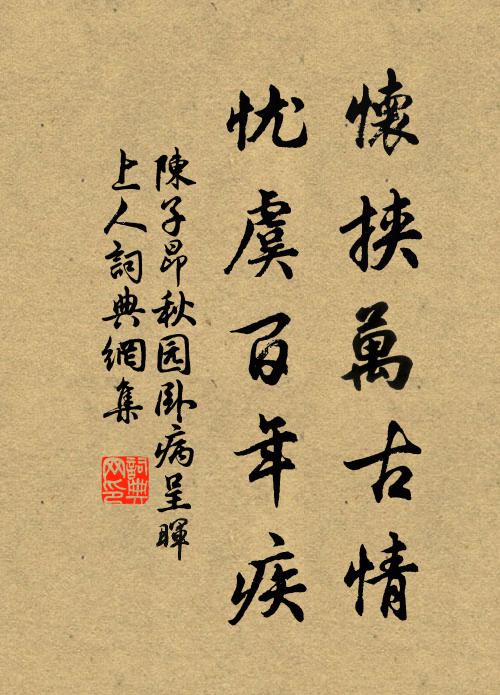 懷挾萬古情
忧虞百年疾
陳子昂秋园卧病呈暉
上人詞典網集
詞典网印